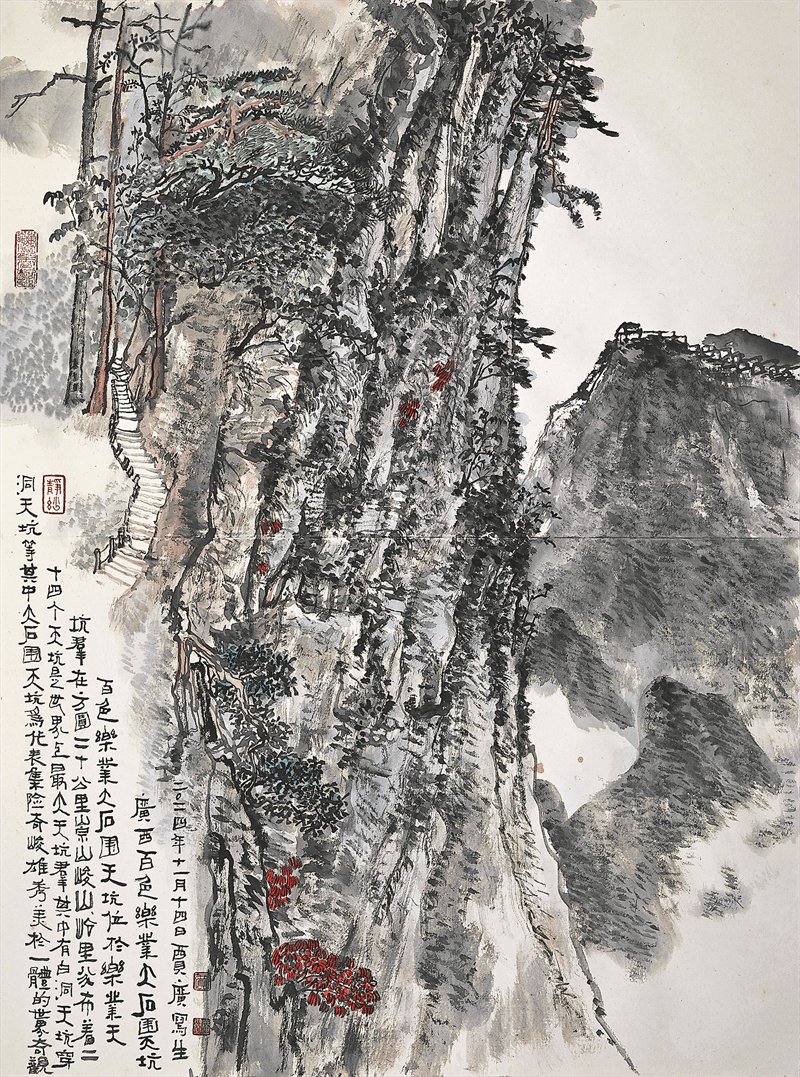 二〇二四年十一月十四日廣寫生
廣西百色樂業大石围天坑
百色樂業大石围天坑位於樂業天
坑羣在方圓二十公里崇山峻岭里分布着二
十四个天坑是世界上最大天坑羣其中有白洞天坑穿
洞天坑等其中大石围天坑為代表集险奇峻雄秀美於一體的世界奇觀